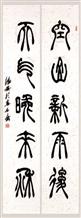 空山新雨後
天气晚来秋